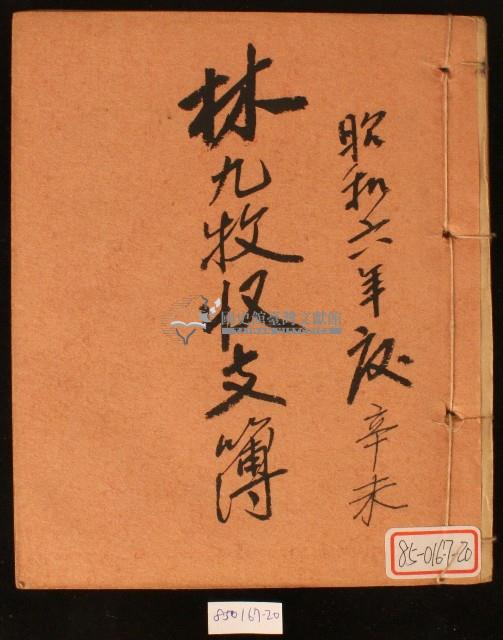 昭和六年度 辛未
林九牧收支簿
國史館臺灣文獻館
85-0167-20
850167-20